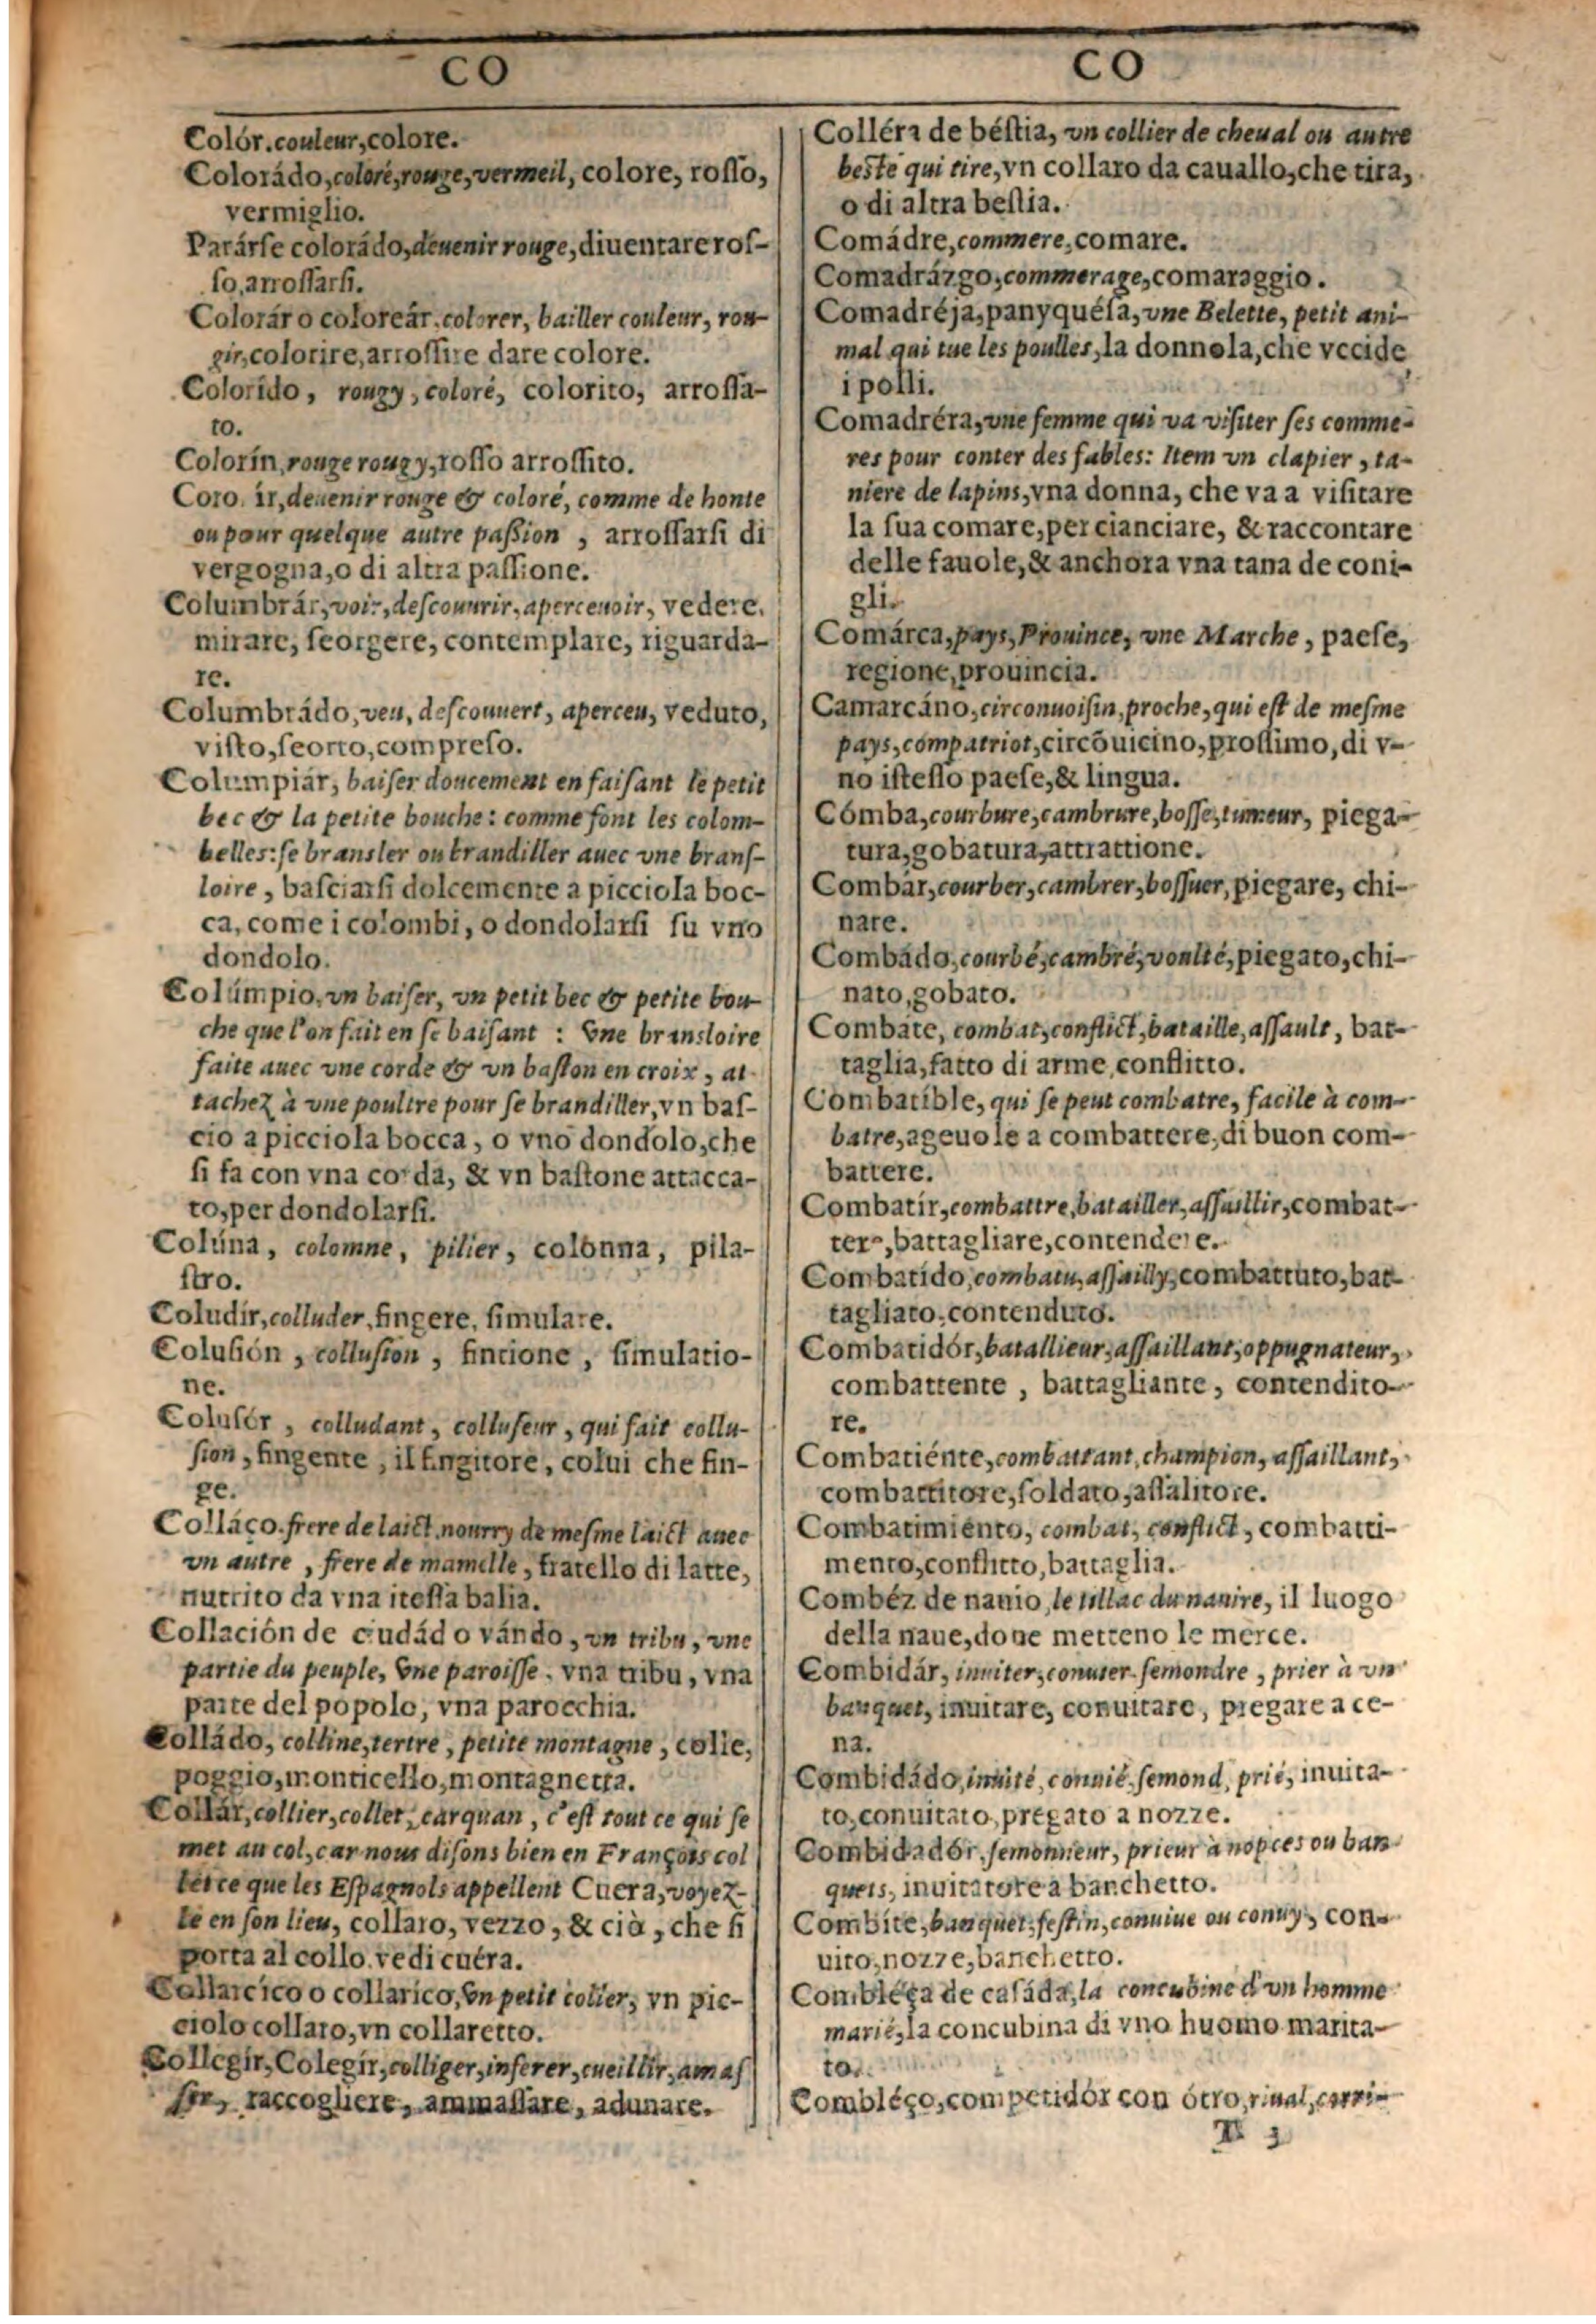 CO
Colór, couleur, colore.
Colorádo, coloré, rouge, vermeil, colore, roſſo,
vermiglio.
Parárſe colorádo, deuenir rouge, diuentare roſ-
ſo, arroſſarſi.
Colorár o coloreár, colorer, bailler couleur, rou-
gir, colorire, arroſſire dare colore.
Colorído, rougy, coloré, colorito, arroſſa-
to.
Colorín, rouge rougy, roſſo arroſſito.
Coro. ír, deuenir rouge & coloré, comme de honte
ou pour quelque autre paſſion, arroſſarſi di
vergogna, o di altra paſſione.
Columbrár, voir, deſcouurir, aperceuoir, vedere,
mirare, ſeorgere, contemplare, riguarda-
re.
Columbrádo, veu, deſcouuert, aperceu, veduto,
viſto, ſeorto, compreſo.
Columpiár, baiſer doucement en faiſant le petit
bec & la petite bouche: comme font les colom-
belles: ſe bransler ou brandiller auec vne branſ-
loire, baſciarſi dolcemente a picciola boc-
ca, come i colombi, o dondolarſi ſu vno
dondolo.
Colúmpio, vn baiſer, vn petit bec & petite bou-
che que l'on fait en ſe baiſant: Vne bransloire
faite auec vne corde & vn baſton en croix, at-
tachez à vne poultre pour ſe brandiller, vn baſ-
cio a picciola bocca, o vno dondolo, che
ſi fa con vna corda, & vn baſtone attacca-
to, per dondolarſi.
Colúna, colomne, pilier, colonna, pila-
ſtro.
Coludír, colluder, fingere, ſimulare.
Coluſión, colluſion, fintione, ſimulatio-
ne.
Coluſór, colludant, colluſeur, qui fait collu-
ſion, fingente, il fingitore, colui che fin-
ge.
Colláço. frere de laict, nourry de meſme laict auec
vn autre, frere de mamelle, fratello di latte,
nutrito da vna iteſſa balia.
Collación de ciudád o vándo, vn tribu, vne
partie du peuple, Vne paroiſſe, vna tribu, vna
parte del popolo, vna parocchia.
Colládo, colline, tertre, petite montagne, colle,
poggio, monticello, montagnetta.
Collár, collier, collet, carquan, c'eſt tout ce qui ſe
met au col, car nous diſons bien en François col
let ce que les Eſpagnols appellent Cuera, voyez-
le en ſon lieu, collaro, vezzo, & ciò, che ſi
porta al collo. vedi cuéra.
Collarcíco o collaríco, Vn petit colier, vn pic-
ciolo collaro, vn collaretto.
Collegír, Colegír, colliger, inferer, cueillir, amaſ
ſer, raccogliere, ammaſſare, adunare.
CO
Colléra de béſtia, vn collier de cheual ou autre
beſte qui tire, vn collaro da cauallo, che tira,
o di altra beſtia.
Comádre, commere, comare.
Comadrázgo, commerage, comaraggio.
Comadréja, panyquéſa, vne Belette, petit ani-
mal qui tue les poulles, la donnola, che vccide
i polli.
Comadréra, vne femme qui va viſiter ſes comme-
res pour conter des fables: Item vn clapier, ta-
niere de lapins, vna donna, che va a viſitare
la ſua comare, per cianciare, & raccontare
delle fauole, & anchora vna tana de coni-
gli.
Comárca, pays, Prouince, vne Marche, paeſe,
regione, prouincia.
Camarcáno, circonuoiſin, proche, qui eſt de meſme
pays, compatriot, circõuicino, proſſimo, di v-
no iſteſſo paeſe, & lingua.
Cómba, courbure, cambrure, boſſe, tumeur, piega-
tura, gobatura, attrattione.
Combár, courber, cambrer, boſſuer, piegare, chi-
nare.
Combádo, courbé, cambré, voulté, piegato, chi-
nato, gobato.
Combáte, combat, conflict, bataille, aſſault, bat-
taglia, fatto di arme, conflitto.
Combatíble, qui ſe peut combatre, facile à com-
batre, ageuole a combattere, di buon com-
battere.
Combatír, combattre, batailler, aſſaillir, combat-
tere, battagliare, contendere.
Combatído, combatu, aſſailly, combattuto, bat-
tagliato, contenduto.
Combatidór, batallieur, aſſaillant, oppugnateur,
combattente, battagliante, contendito-
re.
Combatiénte, combattant, champion, aſſaillant,
combattitore, ſoldato, aſſalitore.
Combatimiénto, combat, conflict, combatti-
mento, conflitto, battaglia.
Combéz de nauio, le tillac du nauire, il luogo
della naue, doue metteno le merce.
Combidár, inuiter, conuier ſemondre, prier à vn
banquet, inuitare, conuitare, pregare a ce-
na.
Combidádo, inuité, conuié, ſemond, prié, inuita-
to, conuitato, pregato a nozze.
Combidadór, ſemonneur, prieur à nopces ou ban
quets, inuitatore a banchetto.
Combíte, banquet, feſtin, conuiue ou conuy, con-
uito, nozze, banchetto.
Combléça de caſáda, la concubine d'vn homme
marié, la concubina di vno huomo marita-
to.
Combléço, competidór con ótro, riual, corri-